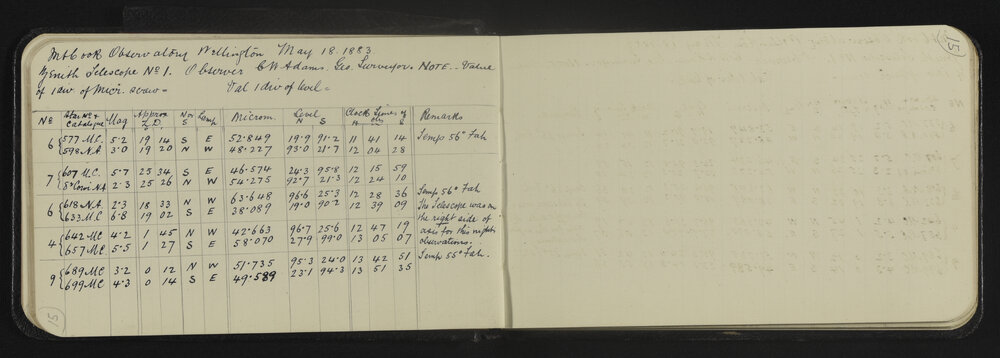 Mt Cook Observatory Wellington May 18. 1883
Zenith Telescope No 1. Observer C W Adams. Geo. Surveyor. NOTE.- Value
of 1 div of Micr. screw = Val 1 div of level =
No Star No & Catalogue Mag Approx Z.D. N or S Lamp Microm. Level N S Clock Times of Obs Remarks
6 { 577 M.C. 5.2 19 14 S E 52.849 19.9 91.2 11 41 14 Temp 56° Fah
598 N.A. 3.0 19 20 N W 48.227 93.0 21.7 12 04 28
7 { 607 M.C. 5.7 25 34 S E 46.574 24.3 95.8 12 15 59
Corvi N.A 2.3 25 26 N W 54.275 92.7 21.3 12 24 10
6 { 618 N.A. 2.3 18 33 N W 63.648 96.6 25.3 12 28 36 Temp 56° Fah
633 M.C 6.8 19 02 S E 38.089 19.0 90.2 12 39 09 The Telescope was on
the right side of
4 { 642 MC 4.2 1 45 N W 42.663 96.7 25.6 12 47 19 axis for this night's
657 MC 5.5 1 27 S E 58.070 27.9 99.0 13 05 07 observations.
9 { 689 M.C. 3.2 0 12 N W 51.735 95.3 24.0 13 42 51 Temp 55° Fah.
699 M.C. 4.3 0 14 S E 49.589 23.1 94.3 13 51 35
15
15